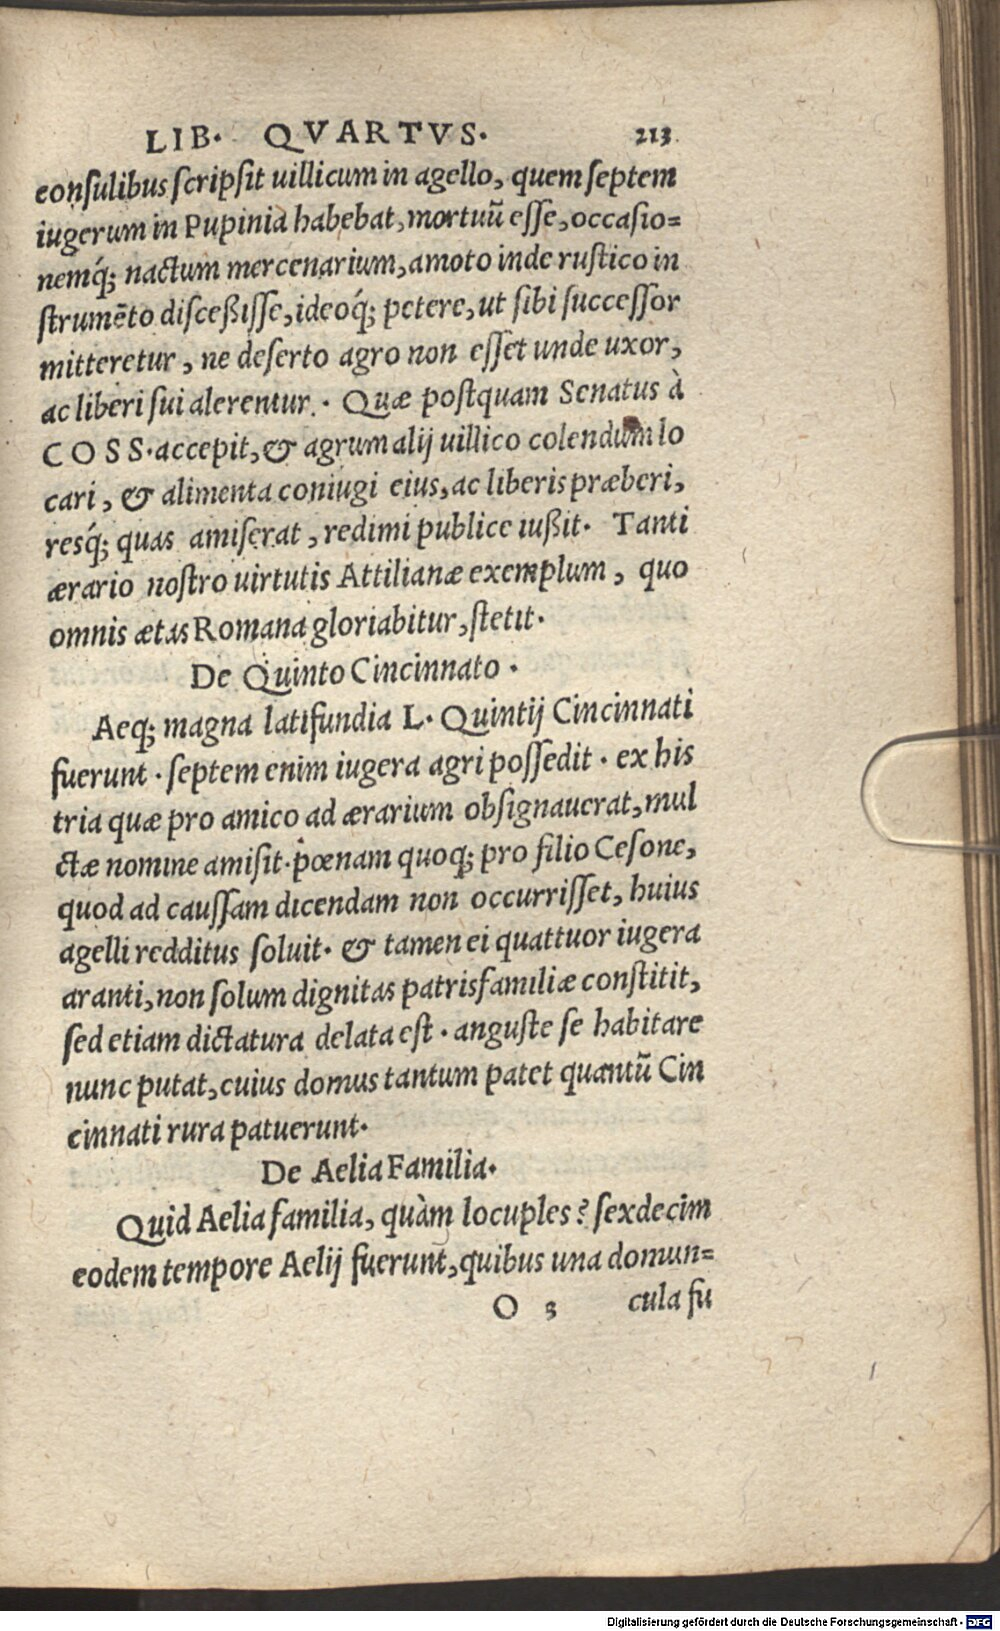 LIB. QVARTVS. 213
consulibus scripsit uillicum in agello, quem septem
iugerum in Pupinia habebat, mortuū esse, occasio=
nemq́; nactum mercenarium, amoto inde rustico in
strumēto disceßisse, ideoq́; petere, ut sibi successor
mitteretur, ne deserto agro non esset unde uxor,
ac liberi sui alerentur. Quæ postquam Senatus à
COSS. accepit, & agrum alij uillico colendum lo
cari, & alimenta coniugi eius, ac liberis præberi,
resq́; quas amiserat, redimi publice iußit. Tanti
ærario nostro uirtutis Attilianæ exemplum, quo
omnis ætas Romana gloriabitur, stetit.
De Quinto Cincinnato.
Aeq; magna latifundia L. Quintij Cincinnati
fuerunt. septem enim iugera agri possedit. ex his
tria quæ pro amico ad ærarium obsignauerat, mul
ctæ nomine amisit. pœnam quoq; pro filio Cesone,
quod ad caussam dicendam non occurrisset, huius
agelli redditus soluit. & tamen ei quattuor iugera
aranti, non solum dignitas patrisfamiliæ constitit,
sed etiam dictatura delata est. anguste se habitare
nunc putat, cuius domus tantum patet quantū Cin
cinnati rura patuerunt.
De Aelia Familia.
Quid Aelia familia, quàm locuples? sexdecim
eodem tempore Aelij fuerunt, quibus una domun=
O 3 cula fu
Digitalisierung gefördert durch die Deutsche Forschungsgemeinschaft - DFG